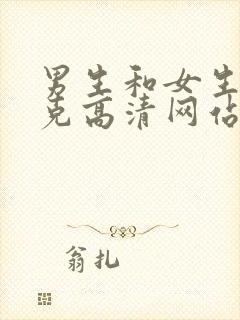 男生和女生
克高清网佔
翁扎